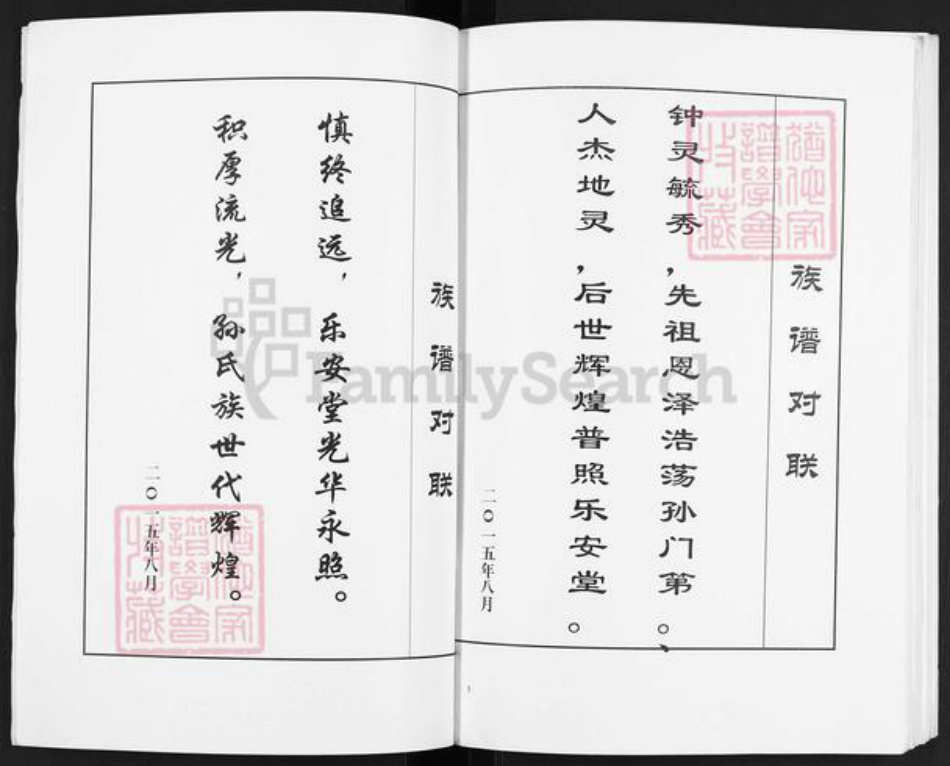 族谱对联
钟灵毓秀，先祖恩泽浩荡孙门第。、
人杰地灵，后世辉煌普照乐安堂。
二〇一五年八月
族谱对联
慎终追远，乐安堂光华永照。
积厚流光，孙氏族世代辉煌。
二〇一五年八月
FamilySearch